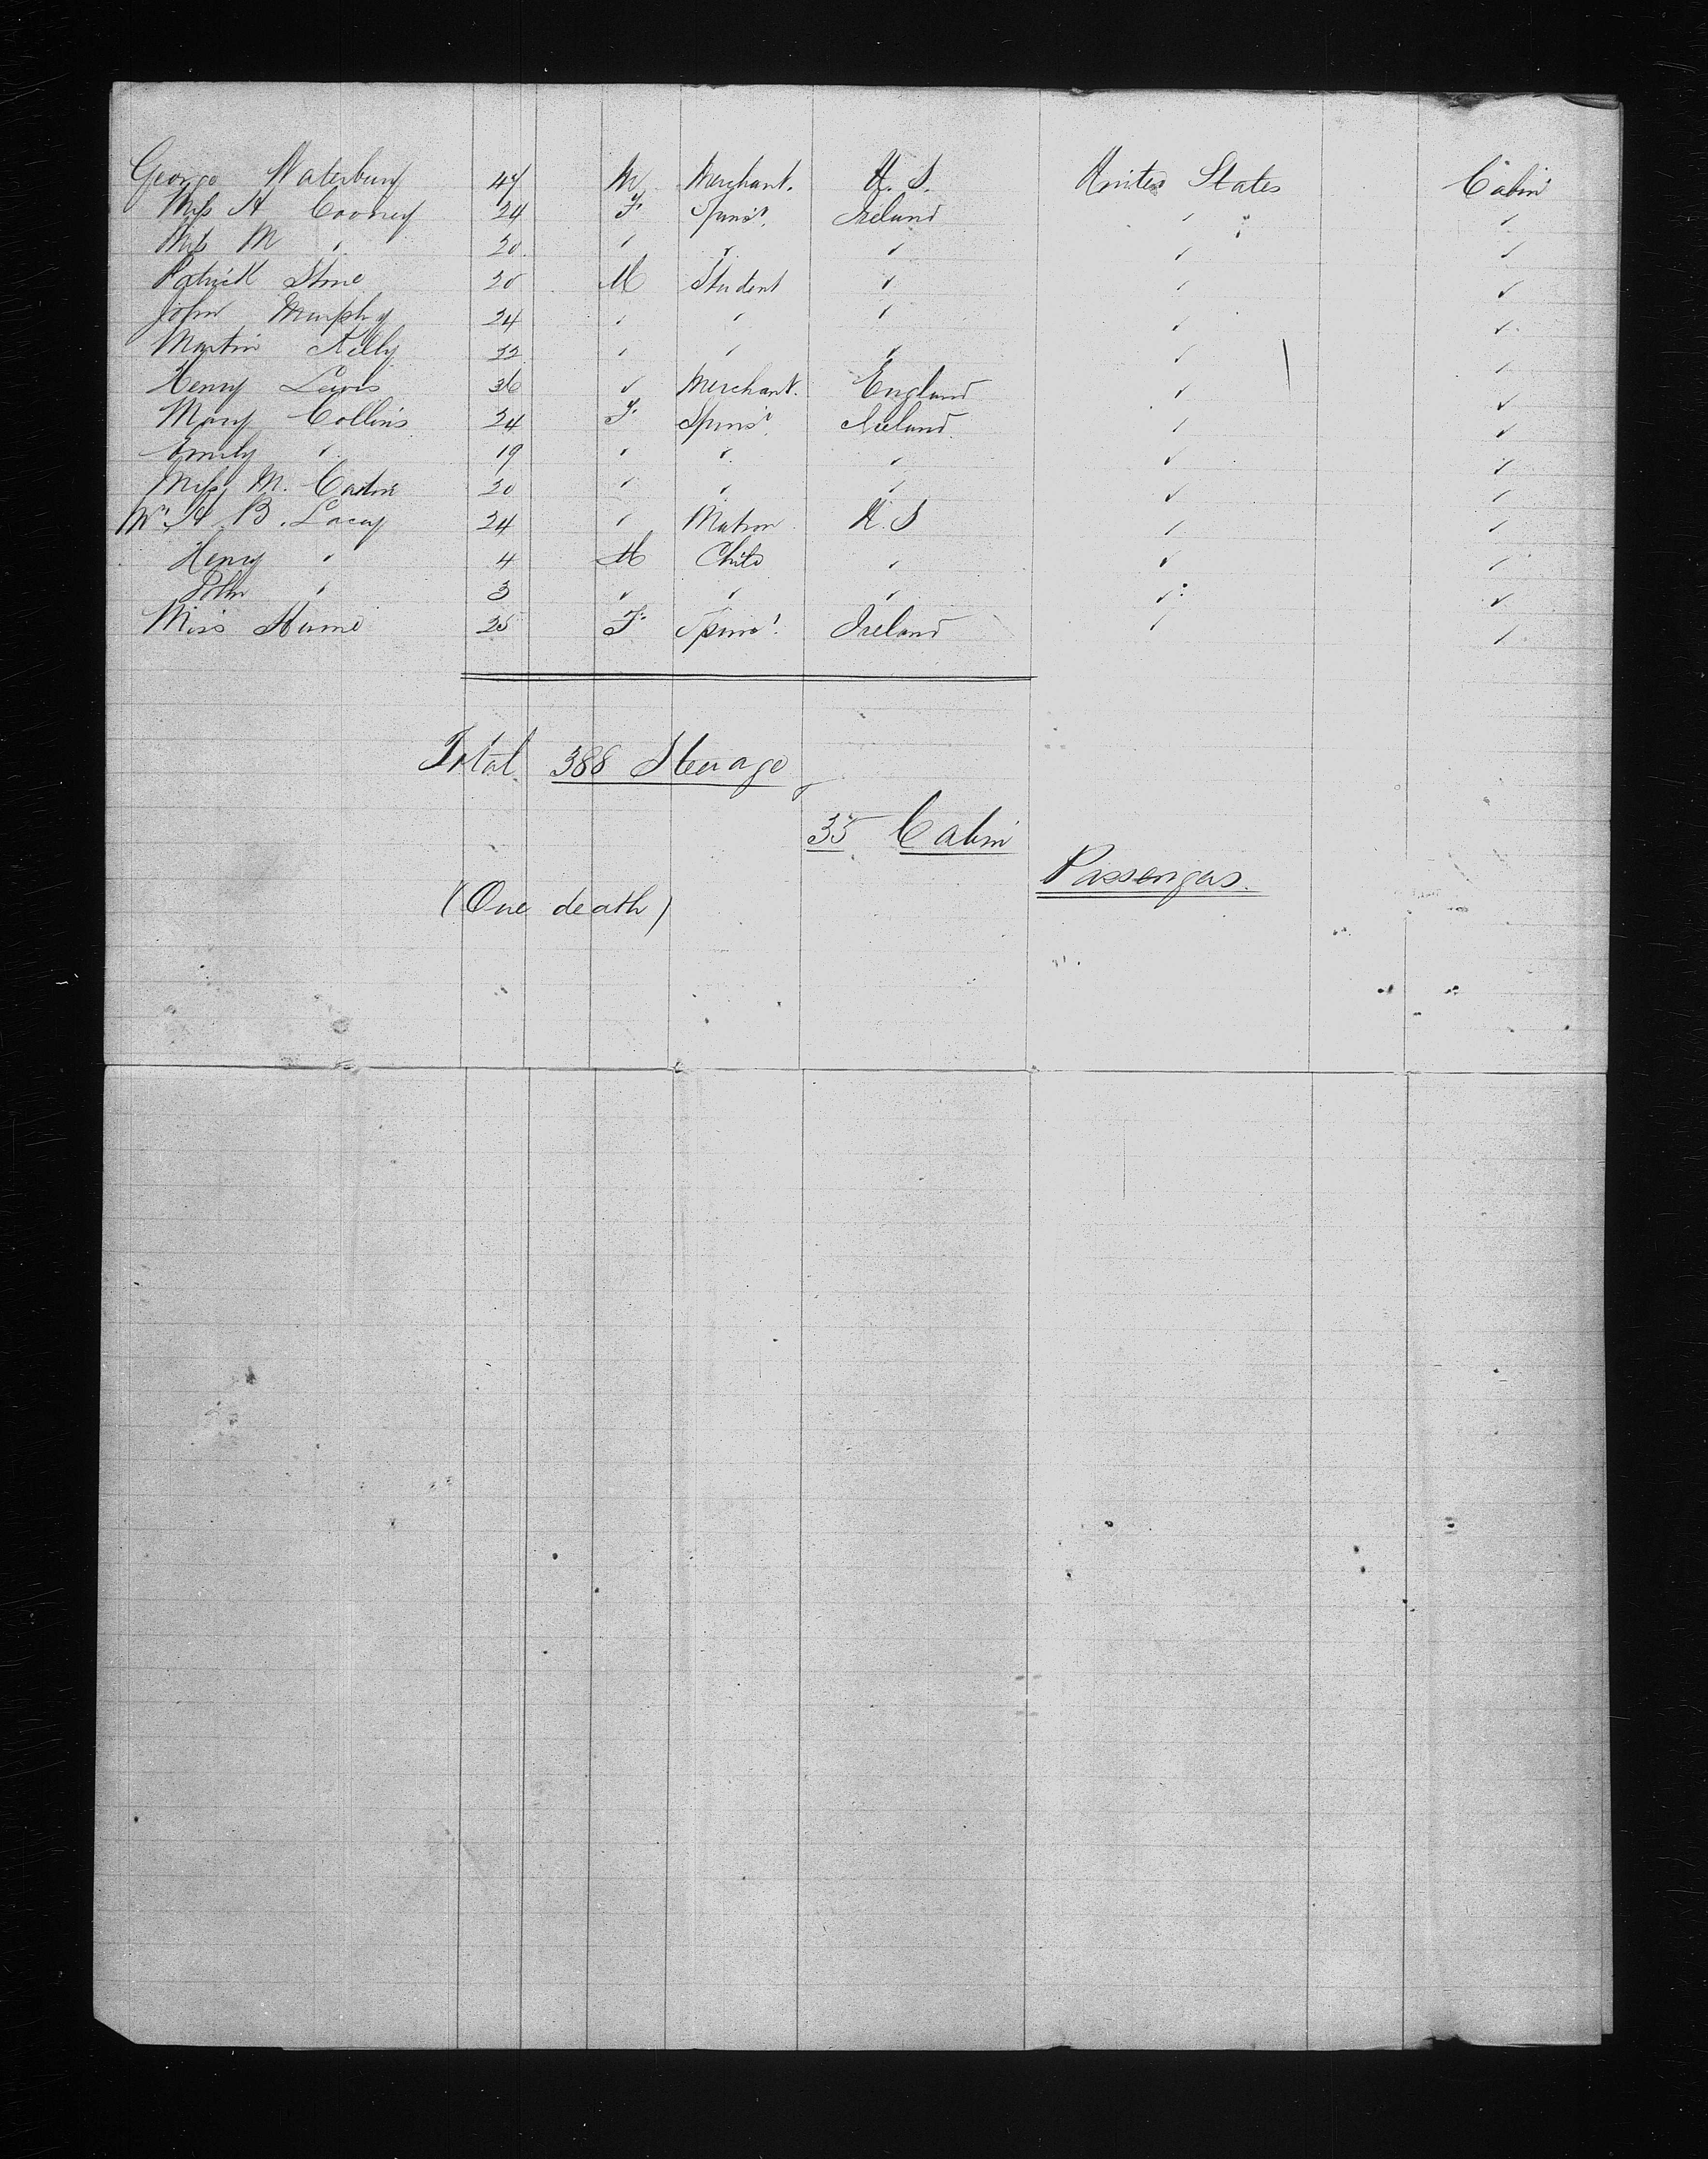 George Waterbury 47 M Merchant. U.S. United States Cabin
Miss A Cooney 24 F Spinsr. Ireland ✓ ✓
Miss M ✓ 20. ✓ ✓ ✓ ✓ ✓
Patrick Stone 20 M Student ✓ ✓ ✓
John Murphy 24 ✓ ✓ ✓ ✓ ✓
Martin Kelly 22 ✓ ✓ ✓ ✓ ✓
Henry Lewis 36 ✓ Merchant. England ✓ ✓
Mary Collins 24 F Spinsr. Ireland. ✓ ✓
Emily ✓ 19 ✓ ✓ ✓ ✓ ✓
Miss M. 20 ✓ ✓ ✓ ✓ ✓
A. B. Lacey 24 ✓ Matron U.S ✓ ✓
Henry ✓ 4 M Child ✓ ✓ ✓
John ✓ 3 ✓ ✓ ✓ ✓ ✓
Miss Hume 25 F Spinsr. Ireland ✓ ✓
Total 388 Steerage
35 Cabin
Passengers.
(One death)